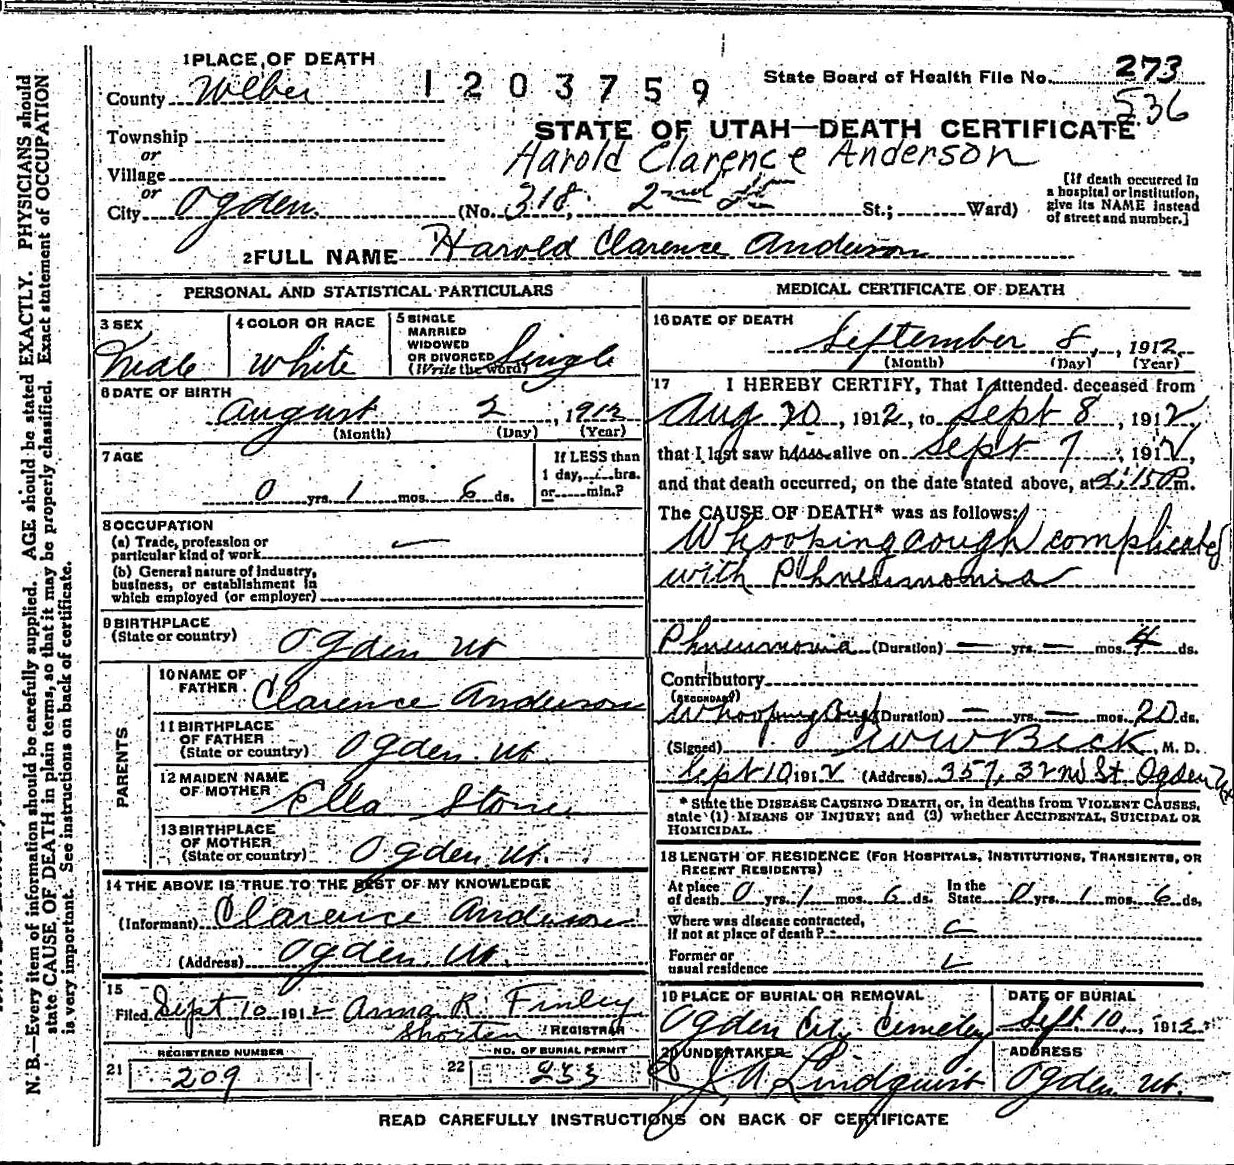 1 PLACE OF DEATH
County Weber
1203759
State Board of Health File No. 273
536
Township
or
Village
or
STATE OF UTAH—DEATH CERTIFICATE
Harold Clarence Anderson
City Ogden (No. 318, 2nd St St.; Ward)
[If death occurred in a hospital or institution, give its NAME instead of street and number.]
2 FULL NAME Harold Clarence Anderson
PERSONAL AND STATISTICAL PARTICULARS
3 SEX
Male
4 COLOR OR RACE
White
5 SINGLE
MARRIED
WIDOWED
OR DIVORCED
(Write the word) Single
6 DATE OF BIRTH
August 2, 1912
(Month) (Day) (Year)
7 AGE
0 yrs. 1 mos. 6 ds.
If LESS than
1 day, hrs.
or min.?
8 OCCUPATION
(a) Trade, profession or
particular kind of work
(b) General nature of industry,
business, or establishment in
which employed (or employer)
9 BIRTHPLACE
(State or country) Ogden Ut
PARENTS
10 NAME OF
FATHER Clarence Anderson
11 BIRTHPLACE
OF FATHER
(State or country) Ogden. Ut.
12 MAIDEN NAME
OF MOTHER Ella Stone
13 BIRTHPLACE
OF MOTHER
(State or country) Ogden. Ut.
14 THE ABOVE IS TRUE TO THE BEST OF MY KNOWLEDGE
(Informant) Clarence Anderson
(Address) Ogden. Ut.
15
Filed Sept 10 1912 Anna R. Finley
Shorten REGISTRAR
REGISTERED NUMBER
21 209
NO. OF BURIAL PERMIT
22 233
MEDICAL CERTIFICATE OF DEATH
16 DATE OF DEATH
September 8, 1912
(Month) (Day) (Year)
17 I HEREBY CERTIFY, That I attended deceased from
Aug 20, 1912, to Sept 8, 1912
that I last saw him alive on Sept 7, 1912,
and that death occurred, on the date stated above, at 2:15 P m.
The CAUSE OF DEATH* was as follows:
Whooping cough complicated
with Phneumonia
Phneumonia (Duration) — yrs. — mos. 4 ds.
Contributory
(SECONDARY)
Whooping Cough (Duration) — yrs. — mos. 20 ds.
(Signed) W W Beck, M. D.
Sept 10 1912 (Address) 357, 32nd St. Ogden Ut
* State the DISEASE CAUSING DEATH, or, in deaths from VIOLENT CAUSES,
state (1) MEANS OF INJURY; and (2) whether ACCIDENTAL, SUICIDAL OR
HOMICIDAL.
18 LENGTH OF RESIDENCE (FOR HOSPITALS, INSTITUTIONS, TRANSIENTS, OR
RECENT RESIDENTS)
At place
of death 0 yrs. 1 mos. 6 ds.
In the
State 0 yrs. 1 mos. 6 ds.
Where was disease contracted,
if not at place of death?
Former or
usual residence
19 PLACE OF BURIAL OR REMOVAL
Ogden City Cemetery
DATE OF BURIAL
Sept. 10, 1912
20 UNDERTAKER
J. A Lindquist
ADDRESS
Ogden. Ut.
READ CAREFULLY INSTRUCTIONS ON BACK OF CERTIFICATE
N. B.—Every item of information should be carefully supplied. AGE should be stated EXACTLY. PHYSICIANS should
state CAUSE OF DEATH in plain terms, so that it may be properly classified. Exact statement of OCCUPATION
is very important. See instructions on back of certificate.